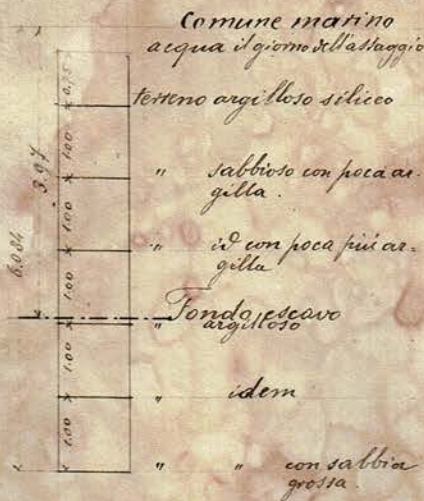 Comune marino
acqua il giorno dell'assaggio
0,75
terreno argilloso siliceo
1.00
3.97
" sabbioso con poca ar=
gilla.
1.00
" id con poca più ar=
gilla
1.00
Fondo escavo
" argilloso
1.00
" idem
1.00
" " con sabbia
grossa.